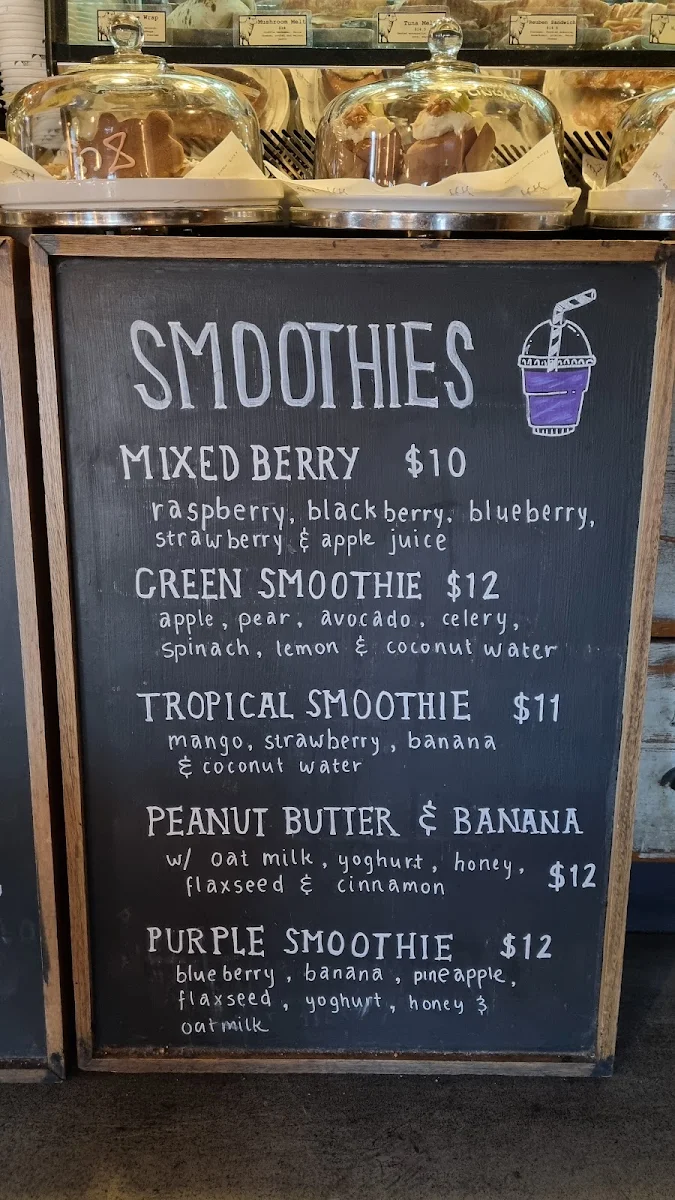 Wrap
Mushroom Melt
Tuna Mel
Reuben Sandwich
SMOOTHIES
MIXED BERRY $10
raspberry, blackberry, blueberry,
strawberry & apple juice
GREEN SMOOTHIE $12
apple, pear, avocado, celery,
spinach, lemon & coconut water
TROPICAL SMOOTHIE $11
mango, strawberry, banana
& coconut water
PEANUT BUTTER & BANANA
w/ oat milk, yoghurt, honey,
flaxseed & cinnamon $12
PURPLE SMOOTHIE $12
blueberry, banana, pineapple,
flaxseed, yoghurt, honey &
oatmilk